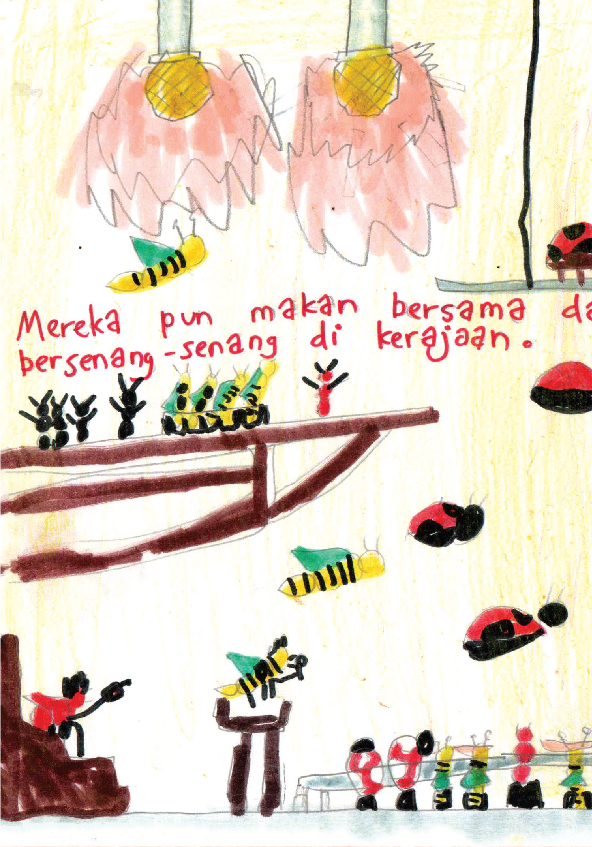 Mereka pun makan bersama da
bersenang-senang di kerajaan.